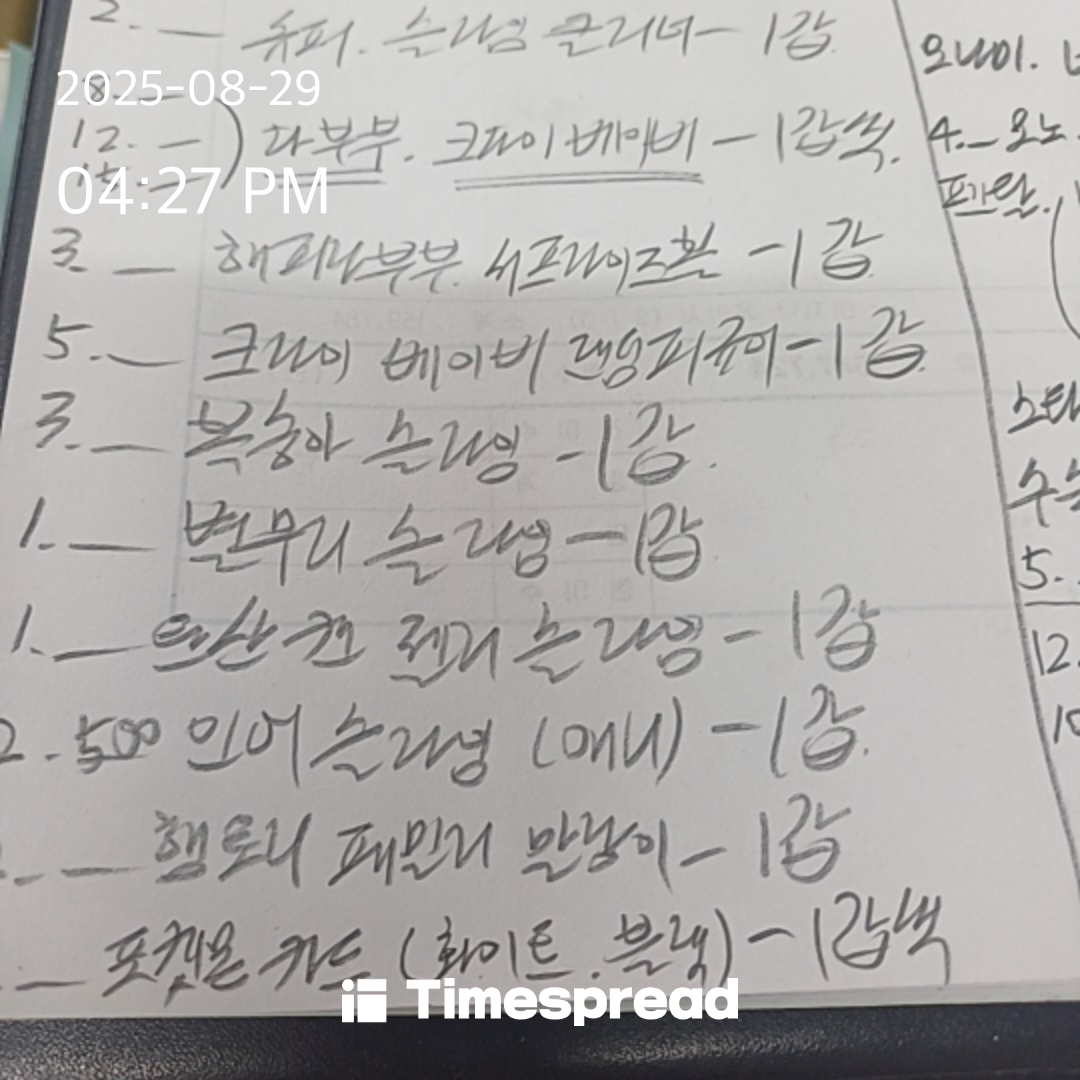 2. — 슈피. 슬라임 클리너 — 1갑
2025-08-29
12. — ) 라부부. 크라이 베이비 — 1갑씩.
04:27 PM
3. — 해피라부부 서프라이즈 — 1갑
5. — 크라이 베이비 랜덤피규어 — 1갑
3. — 복숭아 슬라임 — 1갑.
1. — 별무리 슬라임 — 1갑
1. — 탄산캔 젤리 슬라임 — 1갑
2. 500 인어 슬라임 (애니) — 1갑.
— 햄토리 패밀리 말랑이 — 1갑
— 포켓몬 카드 (화이트. 블랙) — 1갑씩
오나이.
4. — 요노.
5.
12.
10
Timespread